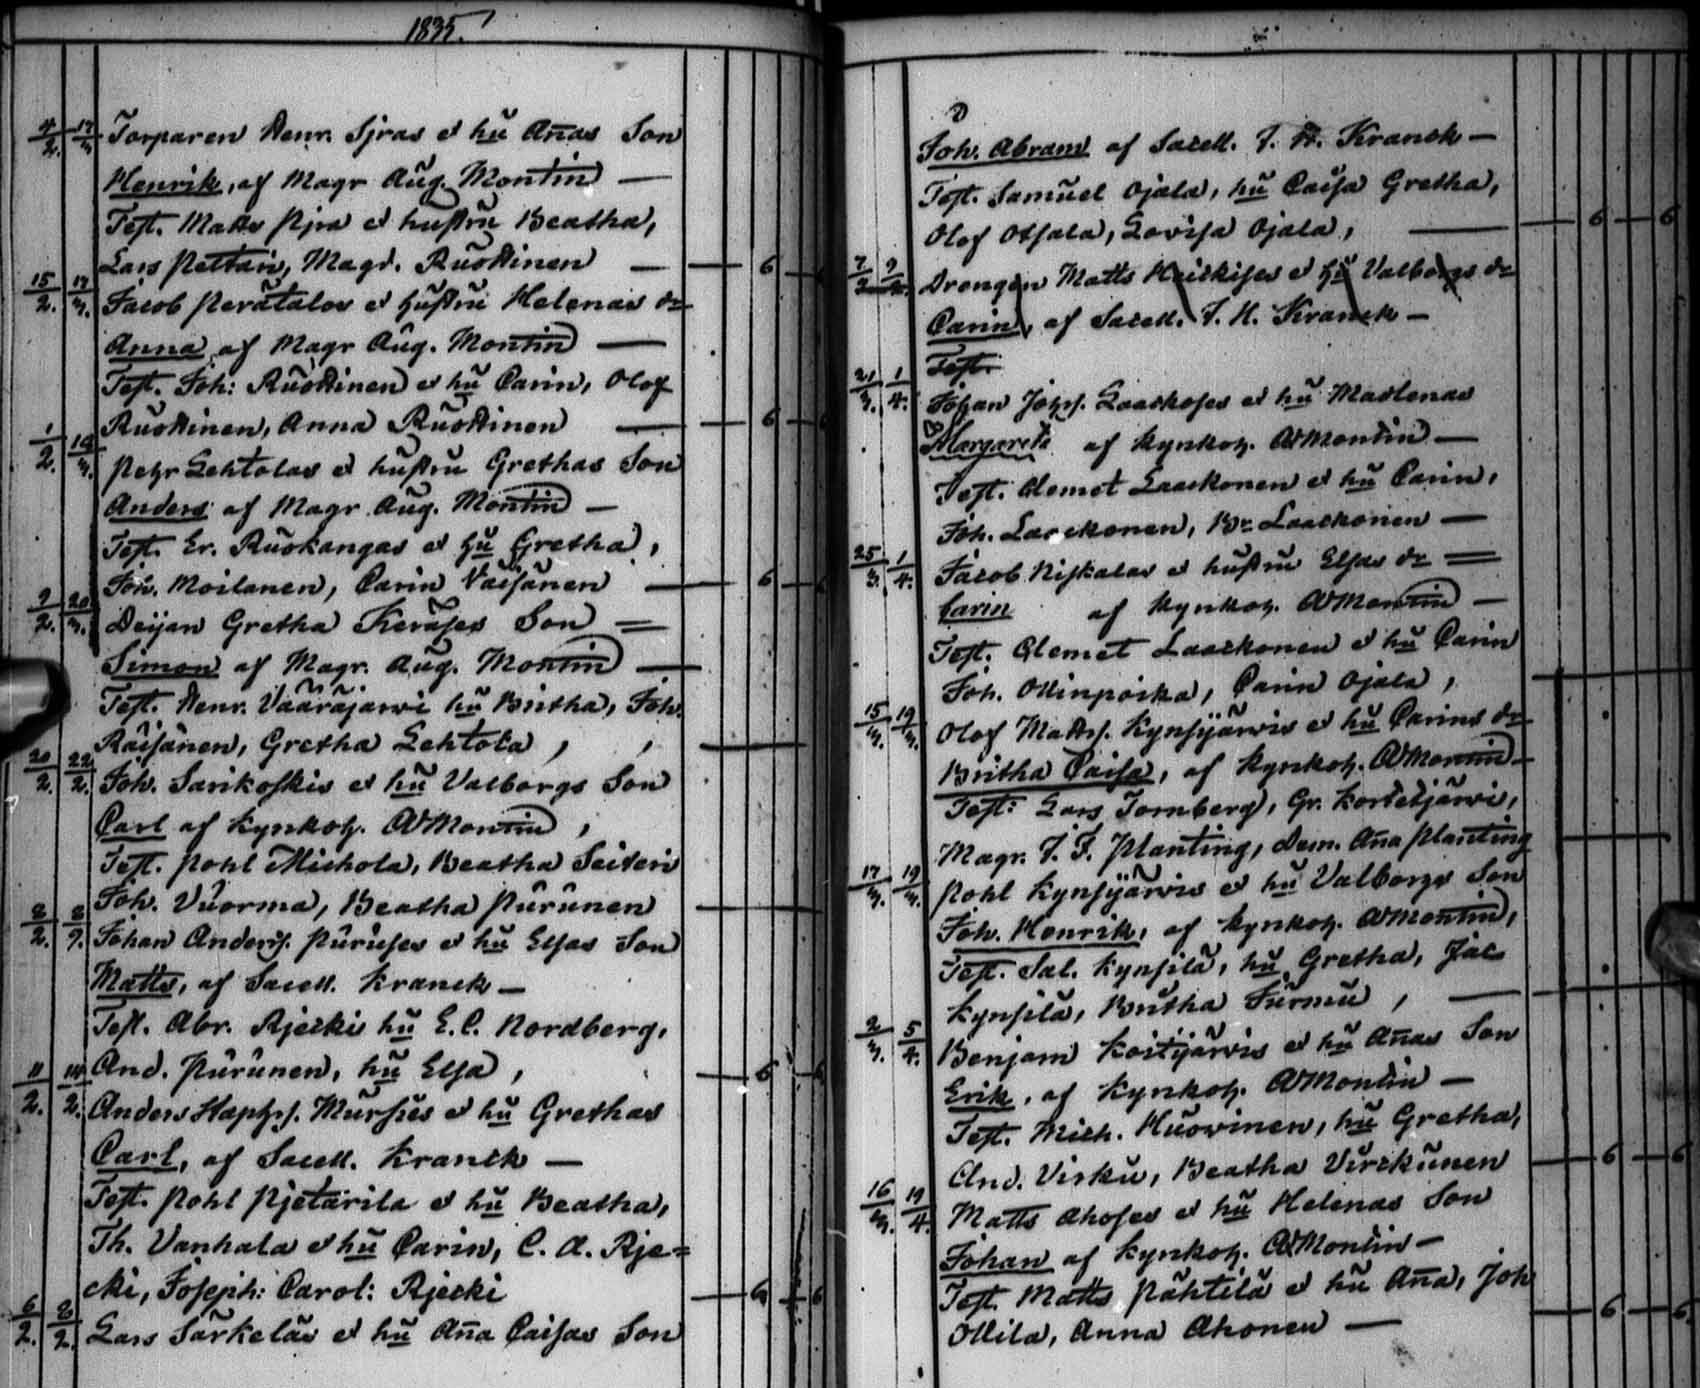 1835.
4/2. 17/3. Torparen Henr. Sjras et hu Añas Son
Henrik, af Magr Aug. Montin —
Test. Matts et hustru Beatha,
Lars Magd. — 6
15/2. 17/3. Jacob Perätalos et hustru Helenas dr
Anna af Magr Aug. Montin —
Test. Joh: et hu Carin, Olof
Anna — 6
1/2. Pehr Lehtolas et hustru Grethas Son
Anders af Magr Aug. Montin —
Test. Er. Ruokangas et hu Gretha,
Joh. Moilanen, Carin Väisänen — 6
9/2. 20/3. Deijan Gretha Son =
Simon af Magr. Aug. Montin —
Test. Henr. Vaarajarvi hu Britha, Joh.
Räisänen, Gretha Lehtola, —
20/2. 22/2. Joh. Sarikoskis et hu Valborgs Son
Carl af Kynkoh. AMontin,
Test. Pohl Michola, Beatha Seiteri
Joh. Vuorma, Beatha Purunen —
8/2. Johan Anders. Puruses et hu Elsas Son
Matts, af Sacell. Kranck —
Test. Abr. Rjecki hu E. C. Nordberg,
And. Purunen, hu Elsa, — 6
11/2. 14/2. Anders Staphs. Mursus et hu Grethas
Carl, af Sacell. Kranck —
Test. Pohl Pjetarila et hu Beatha,
Th. Vanhala et hu Carin, C. A. Rje=
cki, Joseph: Carol: Rjecki — 6 — 6
6/2. 8/2. Lars Särkeläs et hu Aña Caisas Son
Joh. Abram af Sacell. J. H. Kranck —
Test. Samuel Ojala, hu Caisa Gretha,
Olof Ojala, Lovisa Ojala, — 6 — 6
7/2. Drengen Matts Heickises et hu Valborgs dr
Carin, af Sacell. J. H. Kranck —
Test.
21/3. 1/4. Johan Johs. Laackoses et hu Madlenas
Margareta af Kynkoh. AMontin —
Test. Clemet Laackonen et hu Carin,
Joh. Laackonen, Br. Laackonen —
25/3. 1/4. Jacob Niskalas et hustru Elsas dr =
Carin af Kynkoh. AMontin —
Test. Clemet Laackonen et hu Carin
Joh. Ollinpoika, Carin Ojala,
15/3. 19/3. Olof Matts. Kynsijärvis et hu Carins dr
Britha Caisa, af Kynkoh. AMontin —
Test: Lars Tornberg, Gr. Kortetjärvi,
Magr. J. F. Planting, Dem. Aña Planting
17/3. 19/3. Pohl Kynsijärvis et hu Valborgs Son
Joh. Henrik, af Kynkoh. AMontin,
Test. Sal. Kynsilä, hu Gretha, Jac
Kynsilä, Britha Jurmu, —
2/3. 5/4. Benjam Koitijärvis et hu Añas Son
Erik, af Kynkoh. AMontin —
Test. Mich. Huovinen, hu Gretha,
And. Virku, Beatha Virckunen — 6 — 6
16/3. 19/4. Matts Ahoses et hu Helenas Son
Johan af Kynkoh. AMontin —
Test. Matts Pähtilä et hu Aña, Joh
Ollila, Anna Ahonen — 6 — 6